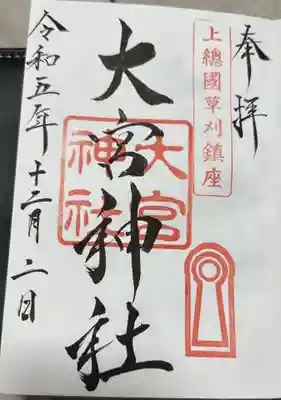 奉拝
上總國草刈鎮座
大宮神社
大宮神社
令和五年十二月二日